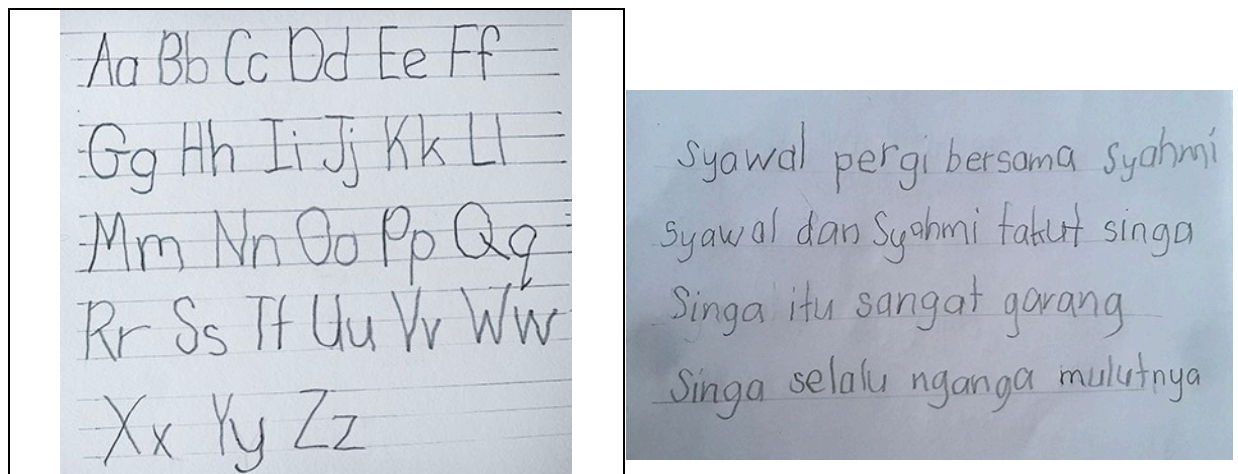 Aa Bb Cc Dd Ee Ff
Gg Hh Ii Jj Kk Ll
Mm Nn Oo Pp Qq
Rr Ss Tt Uu Vv Ww
Xx Yy Zz
Syawal pergi bersama Syahmi
Syawal dan Syahmi takut singa
Singa itu sangat garang
Singa selalu nganga mulutnya